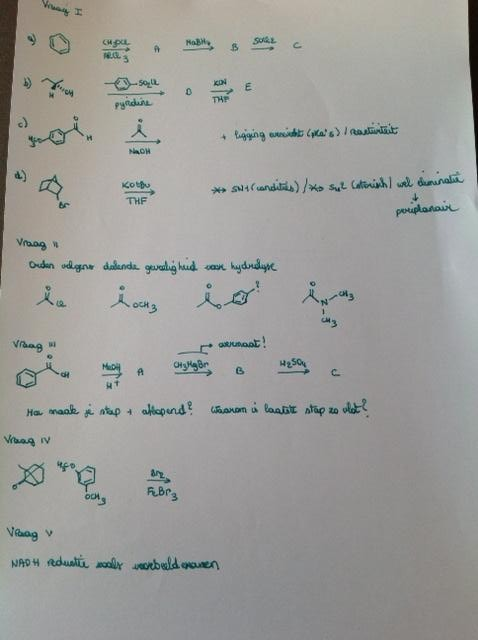 Vraag I
a) CH3OCl AlCl3 A NaBH4 B SOCl2 C
b) H OH SO2Cl pyridine D KCN THF E
c) H3CO O H O NaOH + ligging evenwicht (pKa's) / reactiviteit
d) Br KOtBu THF SN1 (condities) / SN2 (sterisch) wel eliminatie
↓
periplanair
Vraag II
Orden volgens dalende gevoeligheid voor hydrolyse
O Cl O OCH3 O O ? O N CH3
CH3
Vraag III
→ overmaat!
O OH MeOH H+ A CH3MgBr B H2SO4 C
Hoe maak je stap 1 aflopend? Waarom is laatste stap zo vlot?
Vraag IV
O H3CO OCH3 Br2 FeBr3
Vraag V
NADH reductie zoals voorbeeldexamen